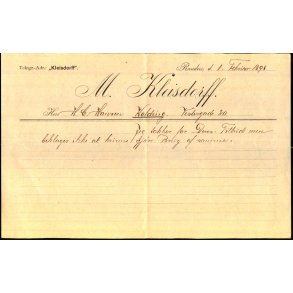 Telegr.-Adr.: „Kleisdorff“.
Randers, d. 1. Februar 1898
M. Kleisdorff.
Herr H. C. Hansen Kolding Vestergade 20
Jeg takker for Deres Tilbud men
beklager ikke at kunne gjøre Brug af samme.